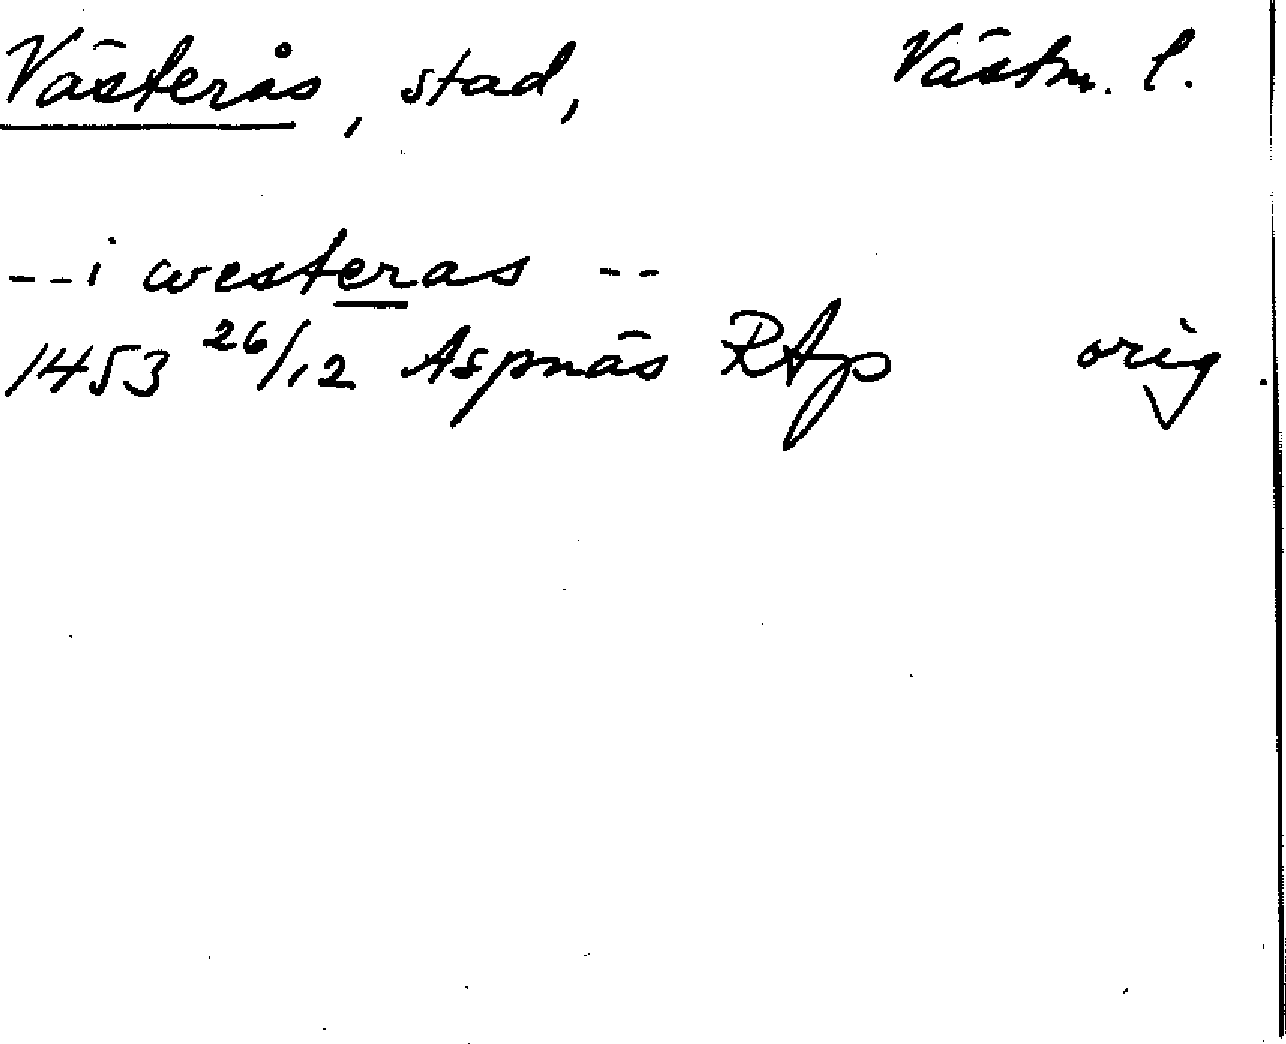 Västerås, stad, Västm. l.
--i westeras --
1453 26/12 Aspnäs RAp orig.